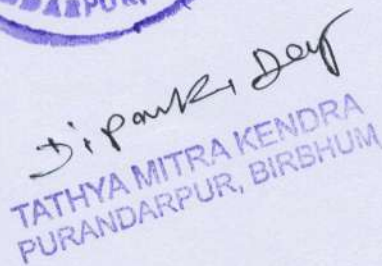 Dey
TATHYA MITRA KENDRA
PURANDARPUR, BIRBHUM